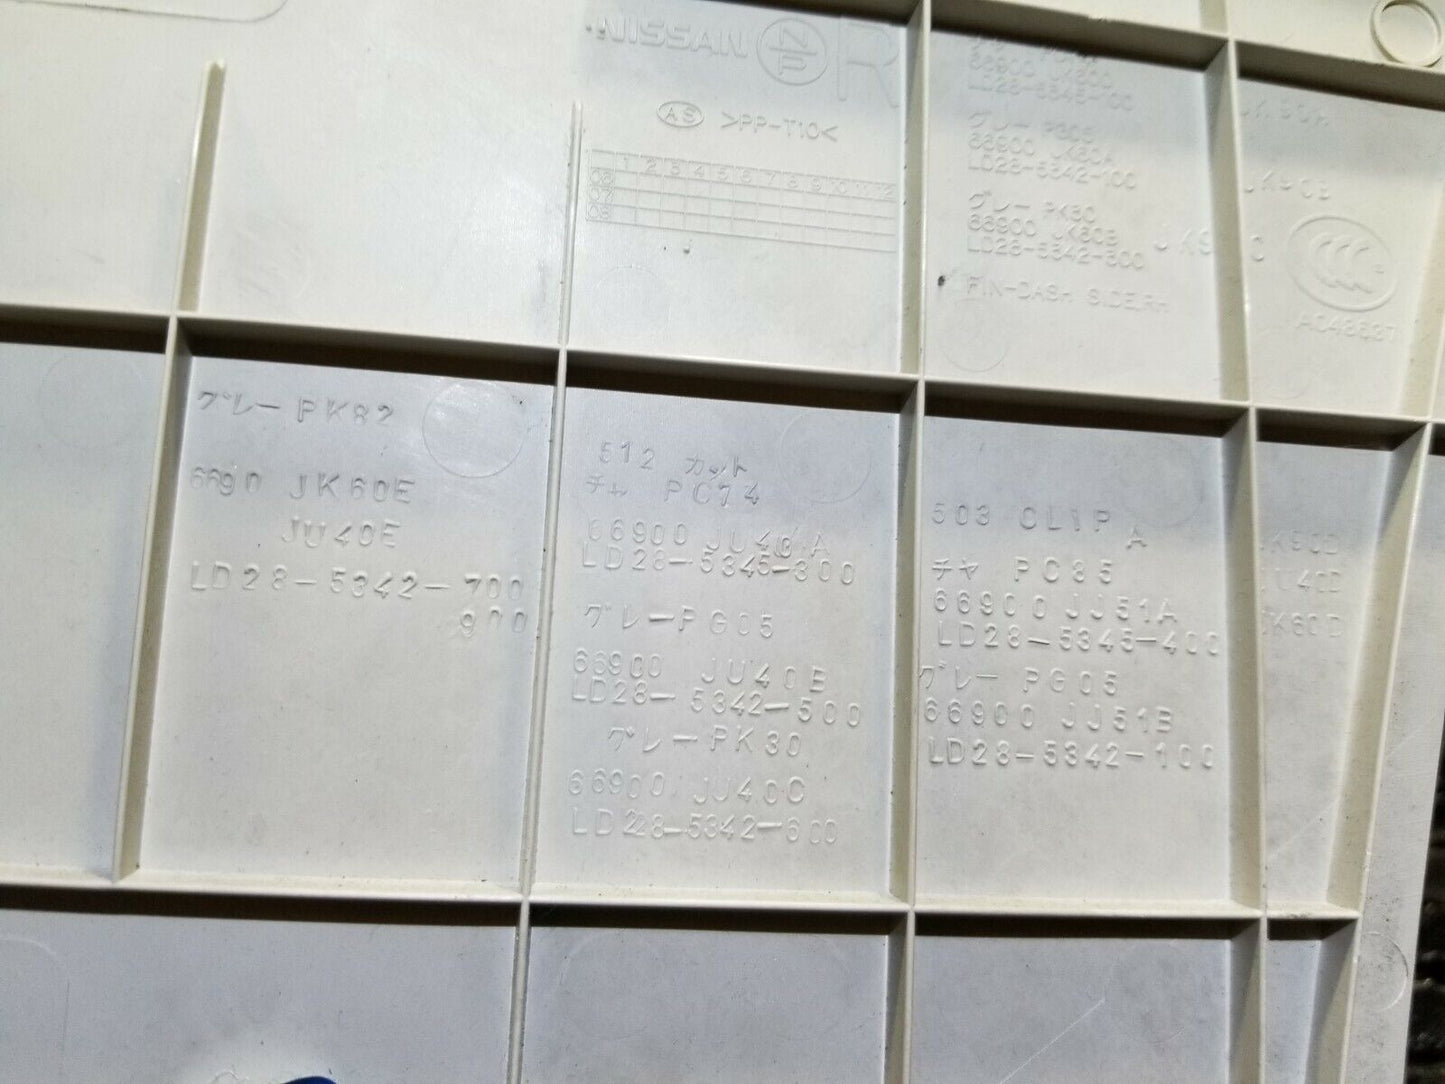 NISSAN NP R
AS >PP-T10<
1 2 3 4 5 6 7 8 9 10 11 12
LD28-5345-100
グレー PG05
66900 JK60A
LD28-5342-100
グレー PK30
66900 JK60B
LD28-5342-300
FIN-DASH SIDE,RH
JK90A
JK90B
JK90C
A048637
グレー PK82
6690 JK60E
JU40E
LD28-5342-700
900
512 カット
チャ PC74
66900 JU40A
LD28-5345-300
グレー PG05
66900 JU40B
LD28-5342-500
グレー PK30
66900 JU40C
LD228-5342-600
503 CLIP A
チャ PC35
66900 JJ51A
LD28-5345-400
グレー PG05
66900 JJ51B
LD28-5342-100
JK90D
JU40D
JK60D